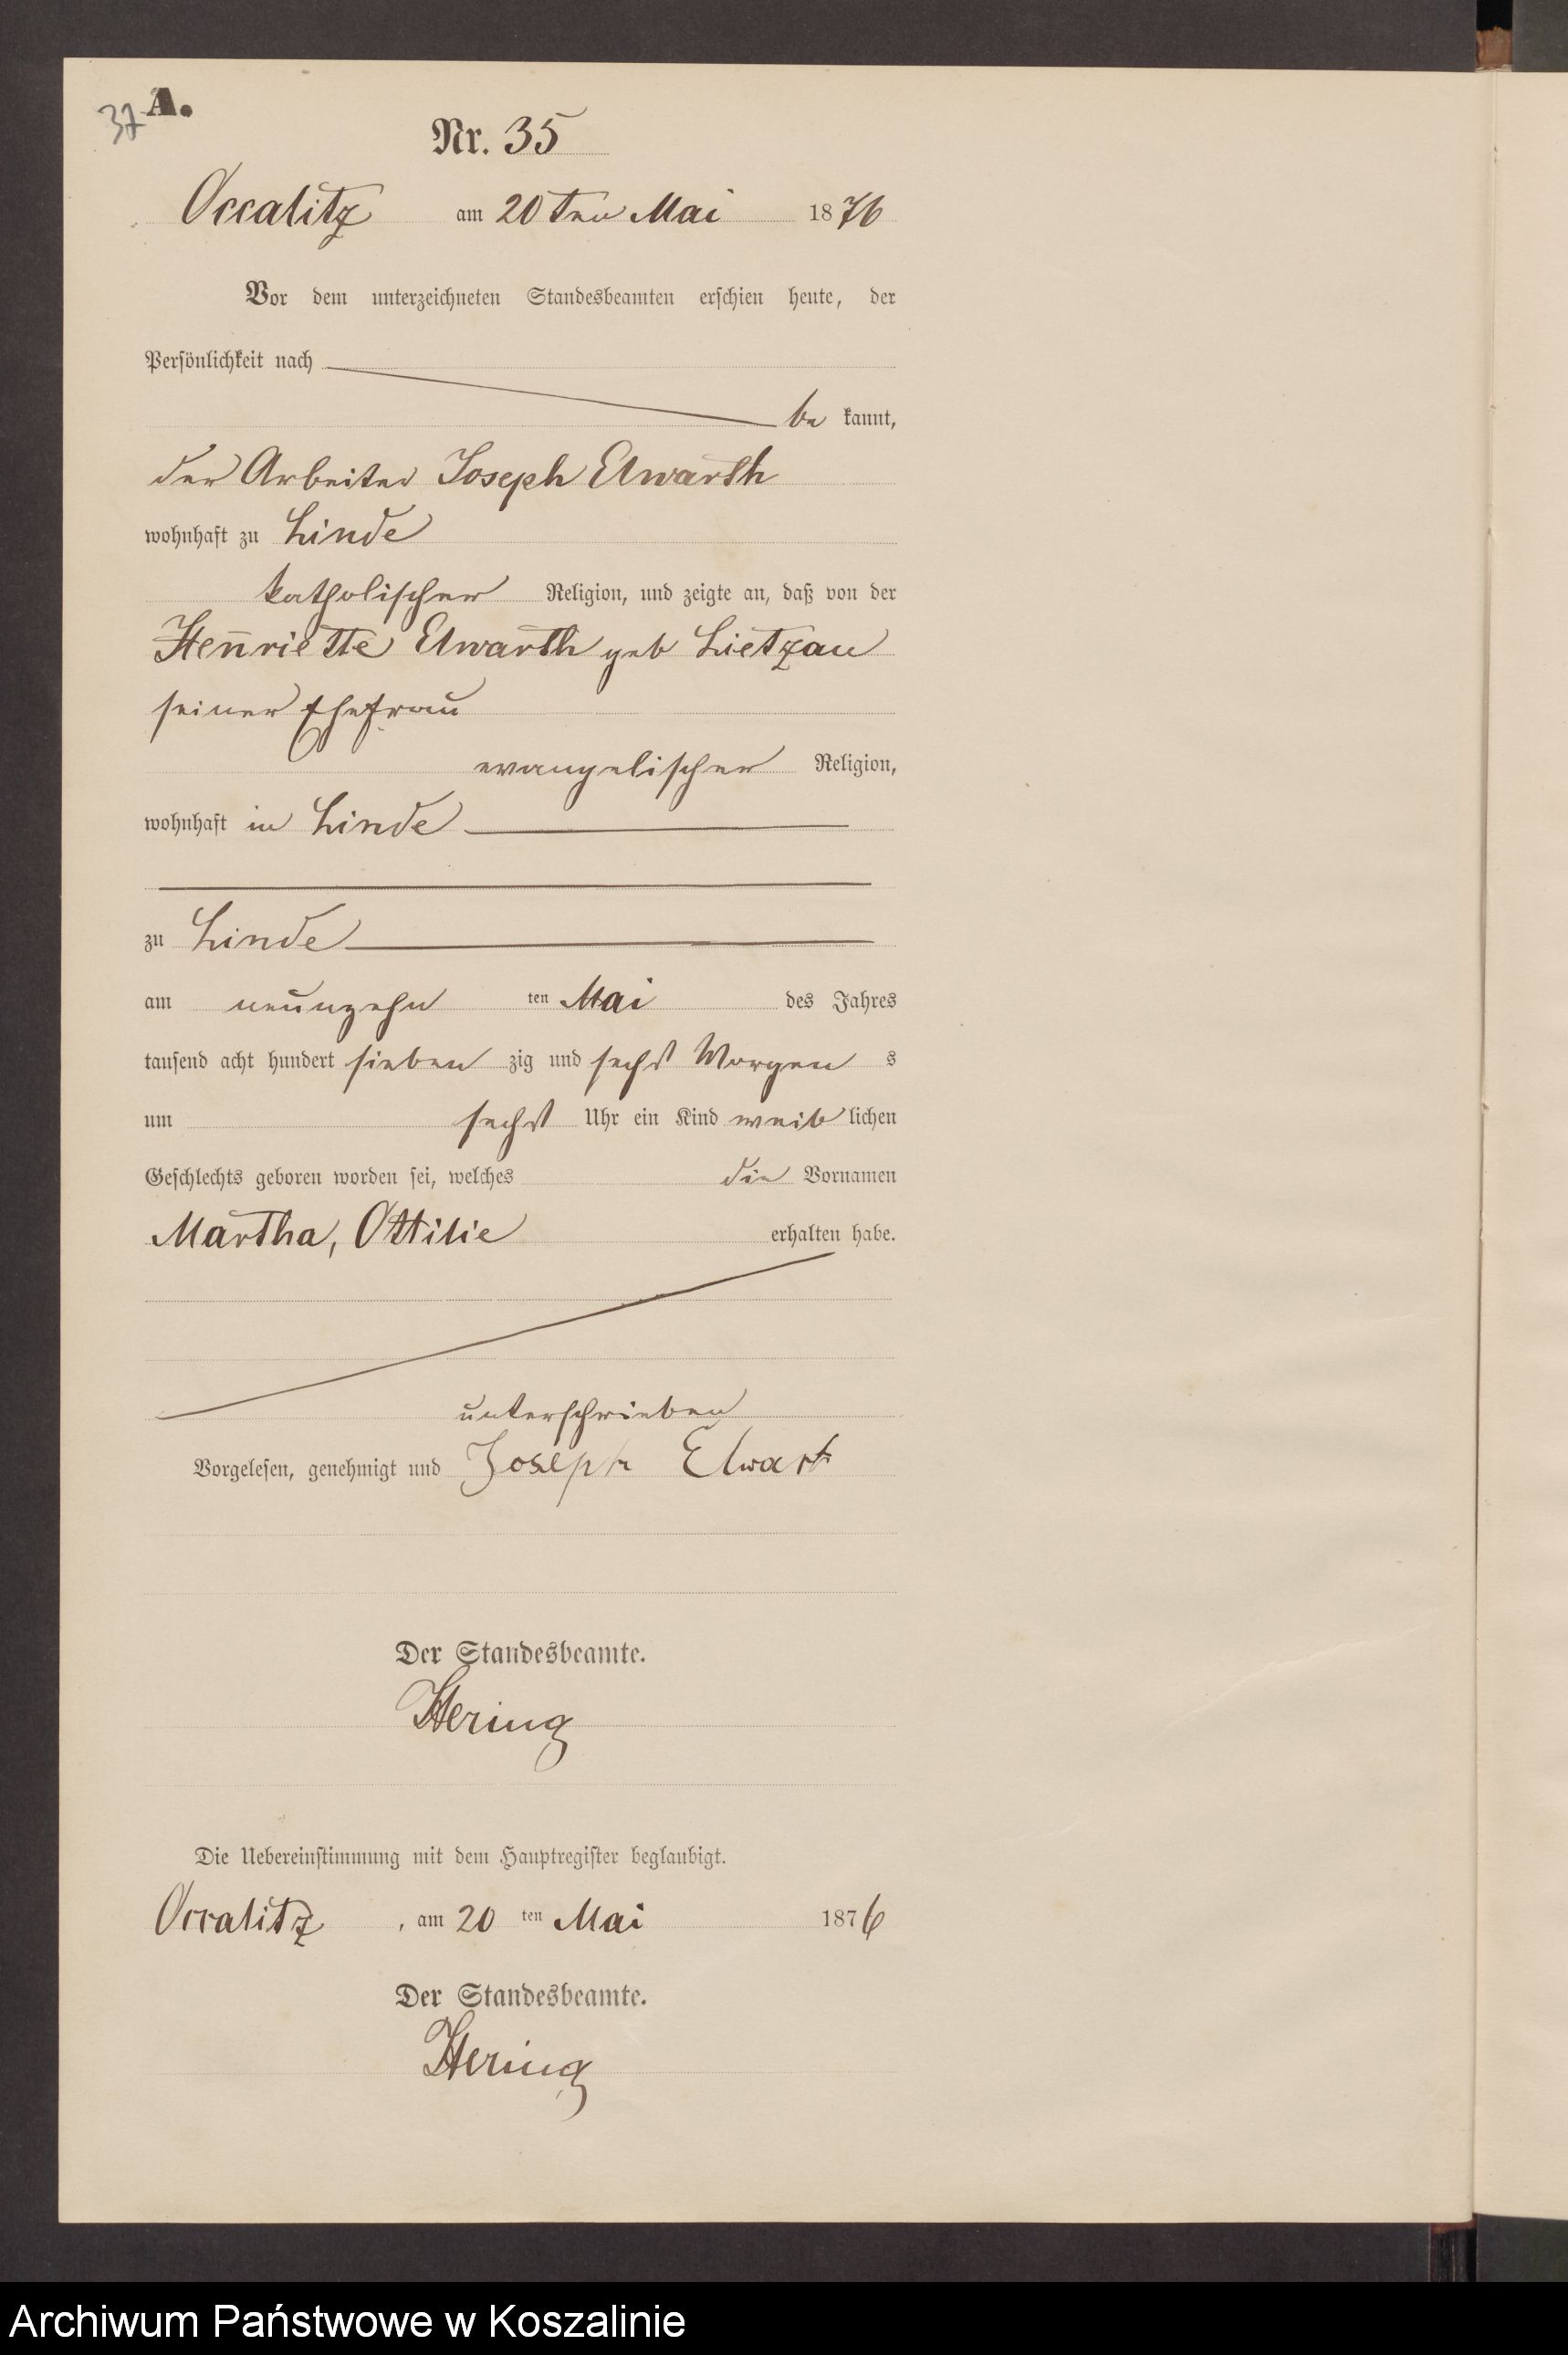 37 A.
Nr. 35
Occalitz am 20ten Mai 1876
Vor dem unterzeichneten Standesbeamten erschien heute, der
Persönlichkeit nach
be kannt,
der Arbeiter Joseph Elwarth
wohnhaft zu Linde
katholischer Religion, und zeigte an, daß von der
Henriette Elwarth geb Lietzau
seiner Ehefrau
evangelischer Religion,
wohnhaft in Linde
zu Linde
am neunzehn ten Mai des Jahres
tausend acht hundert sieben zig und sechs Morgen s
um sechs Uhr ein Kind weib lichen
Geschlechts geboren worden sei, welches die Vornamen
Martha, Ottilie erhalten habe.
unterschrieben
Vorgelesen, genehmigt und Joseph Elwart
Der Standesbeamte.
Hering
Die Uebereinstimmung mit dem Hauptregister beglaubigt.
Occalitz, am 20 ten Mai 1876
Der Standesbeamte.
Hering
Archiwum Państwowe w Koszalinie